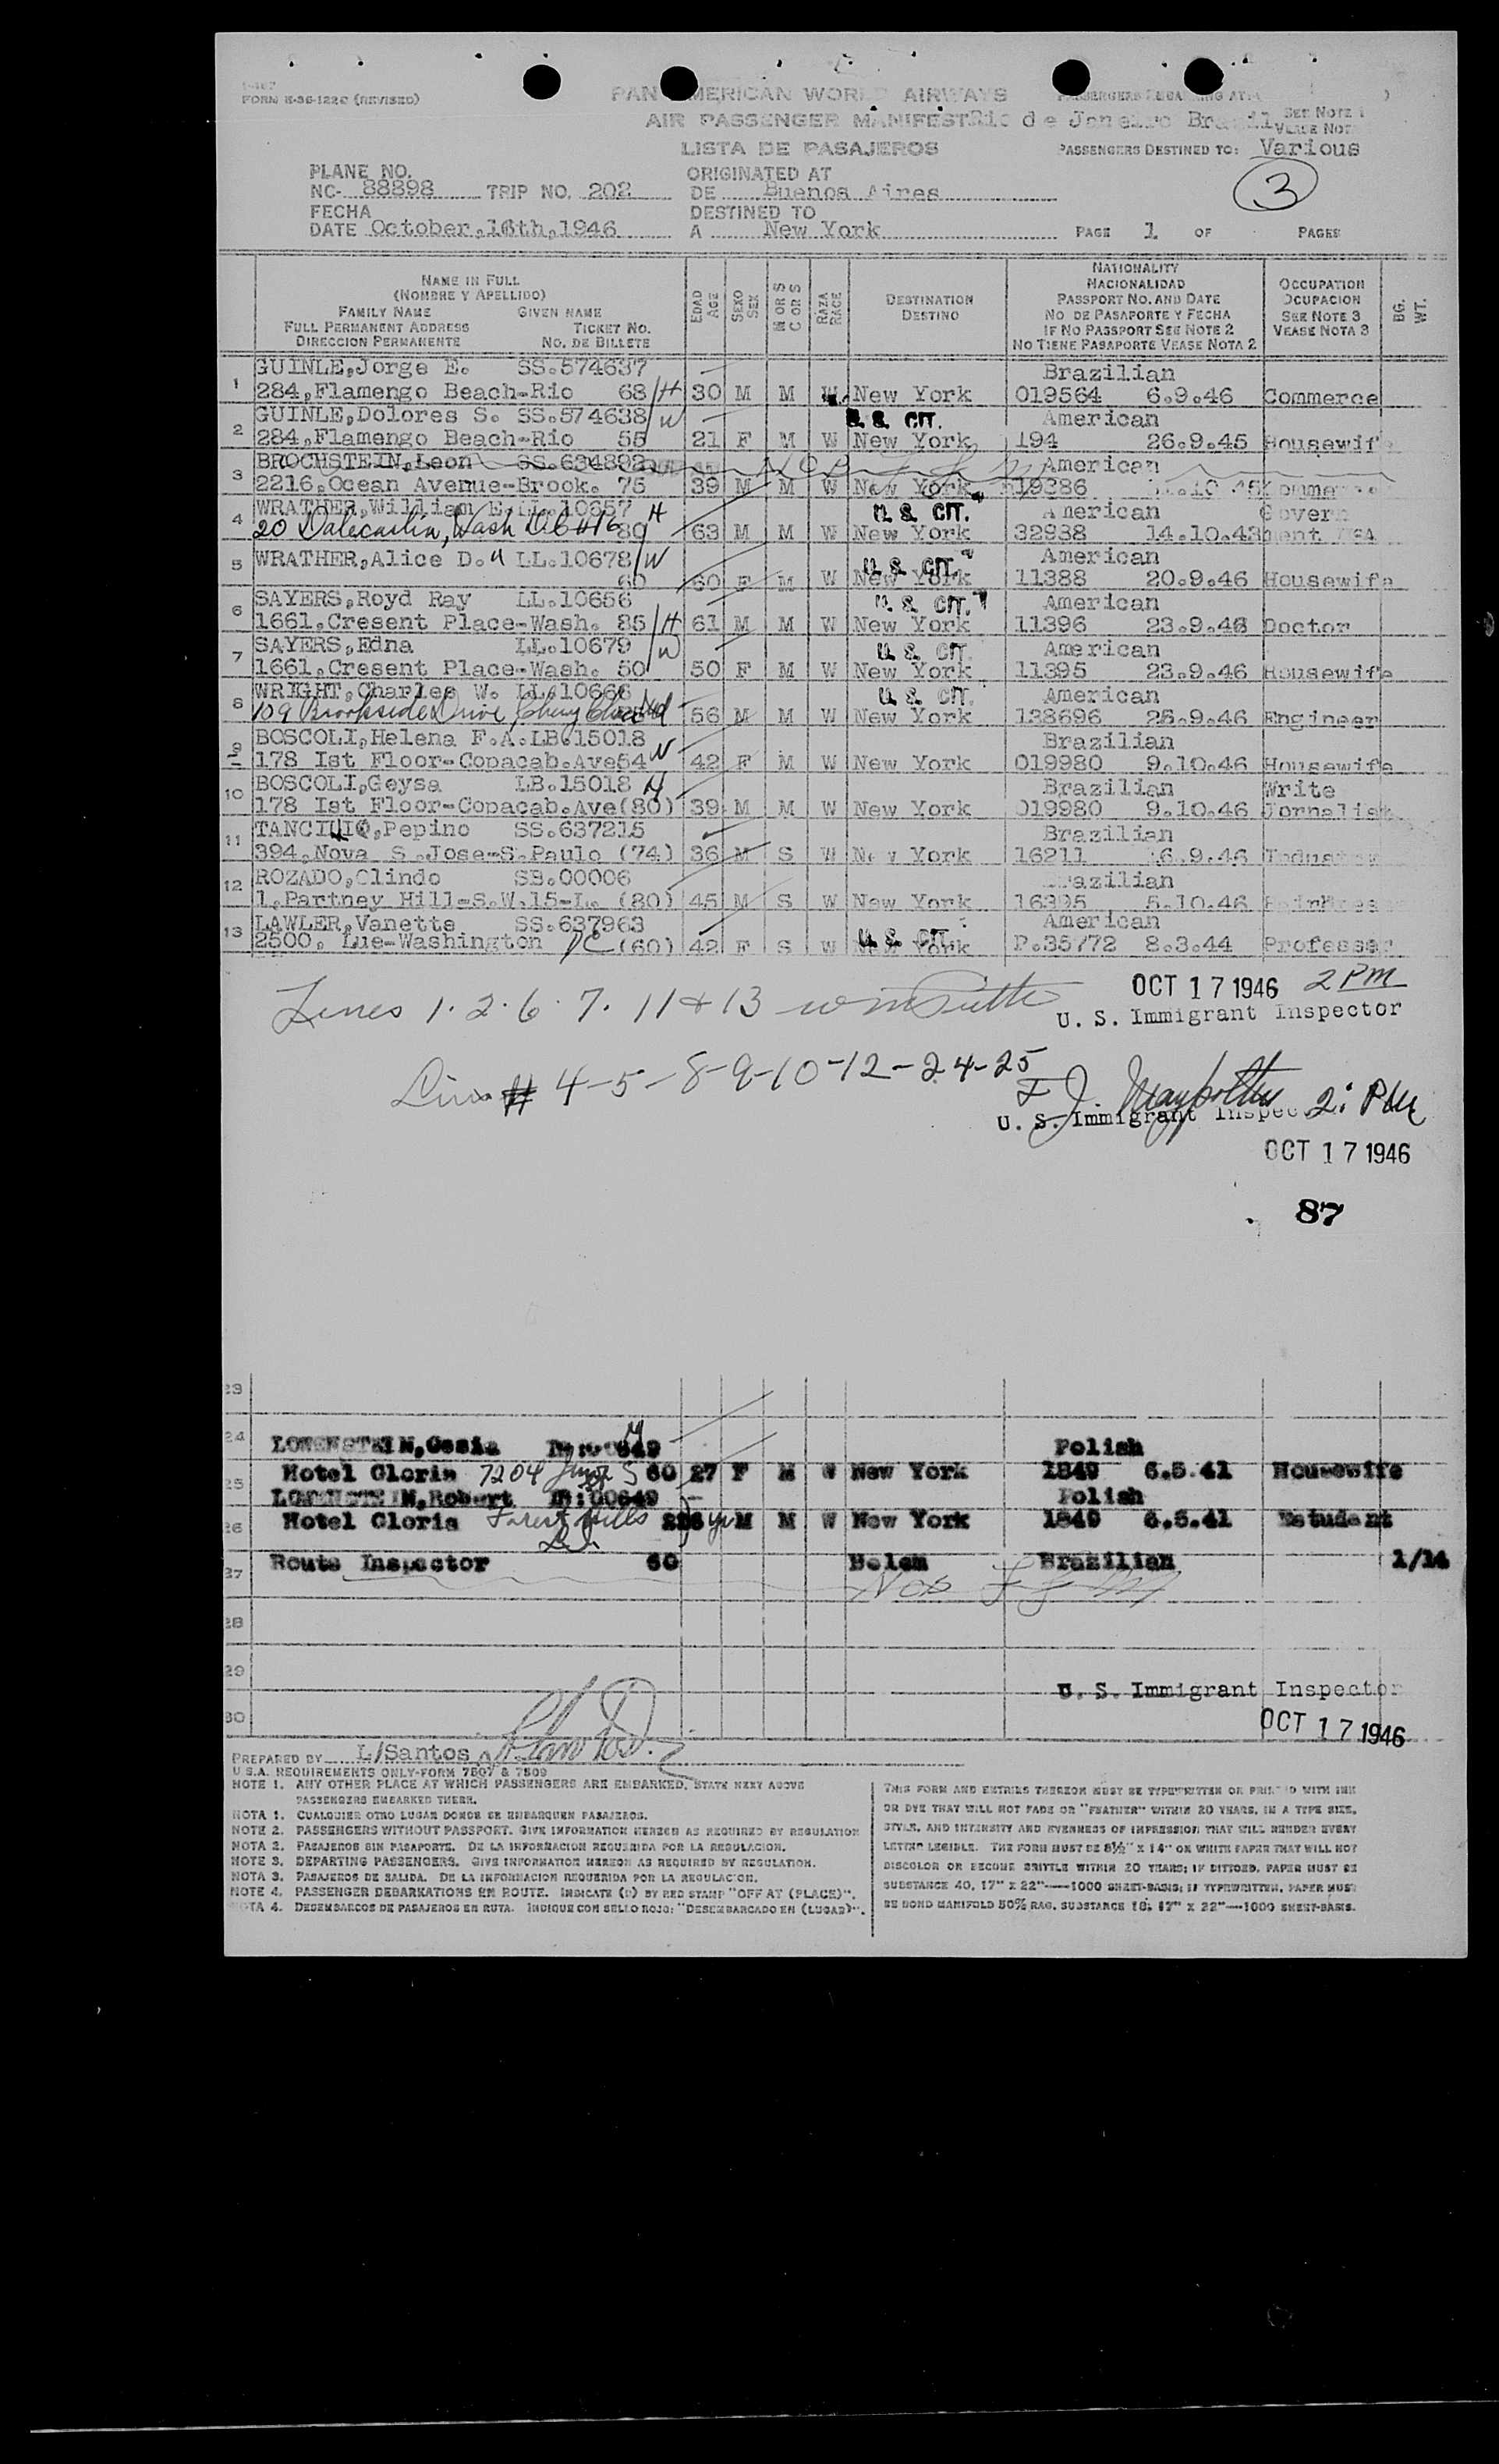 FORM K-36-122C (REVISED)
PAN AMERICAN WORLD AIRWAYS
AIR PASSENGER MANIFEST Rio de Janeiro Brazil SEE NOTE 1
LISTA DE PASAJEROS
PASSENGERS DESTINED TO: Various
3
PLANE NO.
NC- 88898 TRIP NO. 202
ORIGINATED AT
DE Buenos Aires
FECHA
DATE October,16th,1946
DESTINED TO
A New York
PAGE 1 OF PAGES
NAME IN FULL
(NOMBRE Y APELLIDO)
FAMILY NAME GIVEN NAME
FULL PERMANENT ADDRESS TICKET NO.
DIRECCION PERMANENTE NO. DE BILLETE
EDAD AGE
SEXO SEX
M OR S C OR S
RAZA RACE
DESTINATION
DESTINO
NATIONALITY
NACIONALIDAD
PASSPORT NO. AND DATE
NO DE PASAPORTE Y FECHA
IF NO PASSPORT SEE NOTE 2
NO TIENE PASAPORTE VEASE NOTA 2
OCCUPATION
OCUPACION
SEE NOTE 3
VEASE NOTA 3
BG. WT.
GUINLE,Jorge E. SS.574637 Brazilian
1 284,Flamengo Beach-Rio 68 H 30 M M W. New York 019564 6.9.46 Commerce
GUINLE,Dolores S. SS.574638 W U. S. CIT. American
2 284,Flamengo Beach-Rio 55 21 F M W New York 194 26.9.45 Housewife
BROCHSTEIN,Leon SS.634892 American
3 2216,Ocean Avenue-Brook. 75 39 M M W New York 19386
WRATHER,William E. LL.10657 H U. S. CIT. American Govern
4 20 Dalecarlia, Wash 80 63 M M W New York 32938 14.10.43
5 WRATHER,Alice D. LL.10678 W U. S. CIT. American
60 60 F M W New York 11388 20.9.46 Housewife
SAYERS,Royd Ray LL.10656 U. S. CIT. American
6 1661,Cresent Place-Wash. 85 H 61 M M W New York 11396 23.9.46 Doctor
SAYERS,Edna LL.10679 W U. S. CIT. American
7 1661,Cresent Place-Wash. 50 50 F M W New York 11395 23.9.46 Housewife
WRIGHT,Charles W. LL.10666 U. S. CIT. American
8 109 Brookside Drive, Chevy Chase Md 56 M M W New York 138696 25.9.46 Engineer
BOSCOLI,Helena F.A.LB.15018 W Brazilian
9 178 Ist Floor-Copacab.Ave54 42 F M W New York 019980 9.10.46 Housewife
BOSCOLI,Geysa LB.15018 H Brazilian Write
10 178 Ist Floor-Copacab.Ave(80) 39 M M W New York 019980 9.10.46 Jornalist
Pepino SS.637215 Brazilian
11 394,Nova S.Jose-S.Paulo (74) 36 M S W New York 16211 16.9.46
ROZADO,Clindo SB.00006 Brazilian
12 1,Partney Hill-S.W.15-L. (80) 45 M S W New York 16395 5.10.46
LAWLER,Vanette SS.637963 U. S. CIT. American
13 2500, Lue-Washington DC (60) 42 F S W New York P.35772 8.3.44 Professor
Lines 1. 2. 6. 7. 11 & 13
OCT 17 1946 2 PM
U. S. Immigrant Inspector
Line # 4-5-8-9-10-12-24-25
U. S. Immigrant Inspector 2: PM
OCT 17 1946
87
23
24 LOWENSTEIN, 649 Polish
Hotel Gloria 7204 60 27 F M W New York 1849 6.5.41 Housewife
25 LOWENSTEIN,Robert LB:00649 Polish
26 Hotel Gloria Forest Hills M M W New York 1849 6.5.41 Estudent
Route Inspector 60 Belem Brazilian 1/14
27
28
29
U. S. Immigrant Inspector
30
OCT 17 1946
PREPARED BY L/Santos
U.S.A. REQUIREMENTS ONLY-FORM 7507 & 7509
NOTE 1. ANY OTHER PLACE AT WHICH PASSENGERS ARE EMBARKED, STATE NEXT ABOVE
PASSENGERS EMBARKED THERE.
NOTA 1. CUALQUIER OTRO LUGAR DONDE SE EMBARQUEN PASAJEROS.
NOTE 2. PASSENGERS WITHOUT PASSPORT. GIVE INFORMATION HEREON AS REQUIRED BY REGULATION
NOTA 2. PASAJEROS SIN PASAPORTE. DE LA INFORMACION REQUERIDA POR LA REGULACION.
NOTE 3. DEPARTING PASSENGERS. GIVE INFORMATION HEREON AS REQUIRED BY REGULATION.
NOTA 3. PASAJEROS DE SALIDA. DE LA INFORMACION REQUERIDA POR LA REGULACION.
NOTE 4. PASSENGER DEBARKATIONS EN ROUTE. INDICATE (D) BY RED STAMP "OFF AT (PLACE)".
NOTA 4. DESEMBARCOS DE PASAJEROS EN RUTA. INDIQUE CON SELLO ROJO: "DESEMBARCADO EN (LUGAR)".
THIS FORM AND ENTRIES THEREON MUST BE TYPEWRITTEN OR PRINTED WITH INK
OR DYE THAT WILL NOT FADE OR "FEATHER" WITHIN 20 YEARS, IN A TYPE SIZE,
STYLE, AND INTENSITY AND EVENNESS OF IMPRESSION THAT WILL RENDER EVERY
LETTER LEGIBLE. THE FORM MUST BE 8½" X 14" ON WHITE PAPER THAT WILL NOT
DISCOLOR OR BECOME BRITTLE WITHIN 20 YEARS; IF DITTOED, PAPER MUST BE
SUBSTANCE 40, 17" X 22"—1000 SHEET-BASIS; IF TYPEWRITTEN, PAPER MUST
BE BOND MANIFOLD 50% RAG, SUBSTANCE 16, 17" X 22"—1000 SHEET-BASIS.